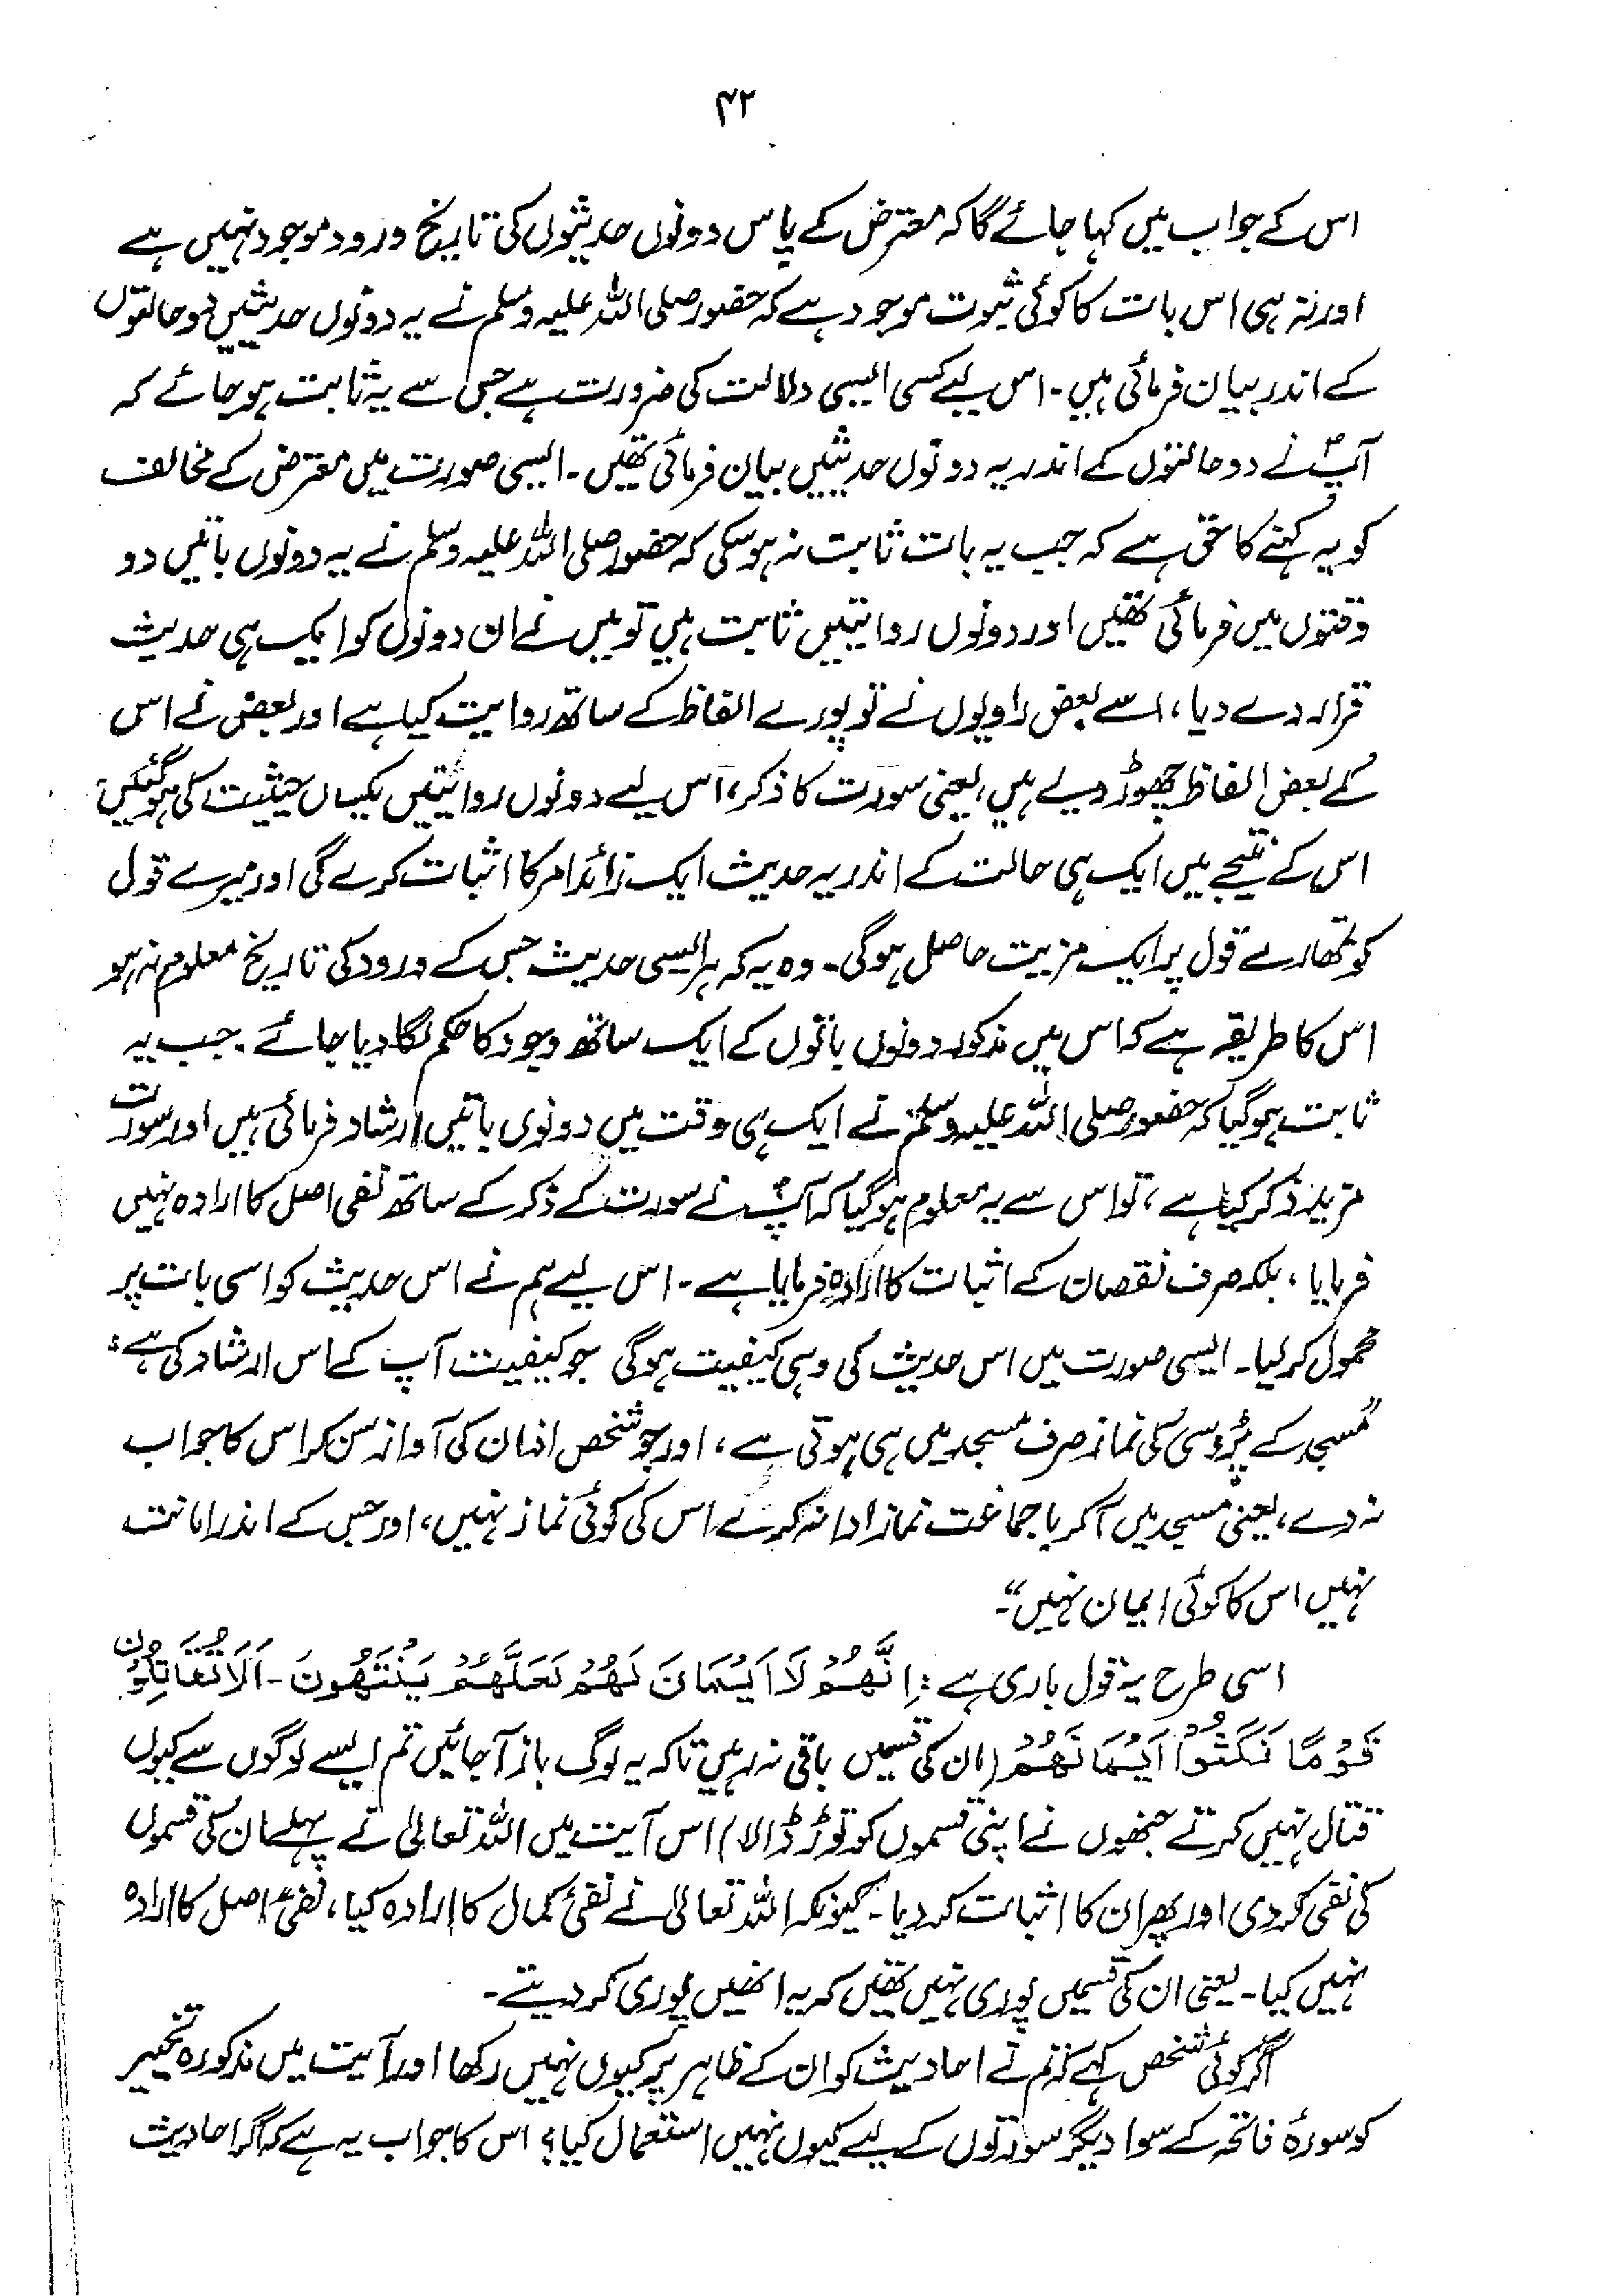 ۴۲
اس کے جواب میں کہا جائے گا کہ معترض کے پاس دونوں حدیثوں کی تاریخ ورود موجود نہیں ہے
اور نہ ہی اس بات کا کوئی ثبوت موجود ہے کہ حضور صلی اللہ علیہ وسلم نے یہ دونوں حدیثیں دو حالتوں
کے اندر بیان فرمائی ہیں۔ اس لیے کسی ایسی دلالت کی ضرورت ہے جس سے یہ ثابت ہو جائے کہ
آپؐ نے دو حالتوں کے اندر یہ دونوں حدیثیں بیان فرمائی تھیں۔ ایسی صورت میں معترض کے مخالف
کو یہ کہنے کا حق ہے کہ جب یہ بات ثابت نہ ہو سکی کہ حضور صلی اللہ علیہ وسلم نے یہ دونوں باتیں دو
وقتوں میں فرمائی تھیں اور دونوں روایتیں ثابت ہیں تو میں نے ان دونوں کو ایک ہی حدیث
قرار دے دیا، اسے بعض راویوں نے تو پورے الفاظ کے ساتھ روایت کیا ہے اور بعض نے اس
کے بعض الفاظ چھوڑ دیے ہیں، یعنی سورت کا ذکر، اس لیے دونوں روایتیں یکساں حیثیت کی ہو گئیں
اس کے نتیجے میں ایک ہی حالت کے اندر یہ حدیث ایک زائد امر کا اثبات کرے گی اور میرے قول
کو تمھارے قول پر ایک مزیت حاصل ہوگی۔ وہ یہ کہ ہر ایسی حدیث جس کے ورود کی تاریخ معلوم نہ ہو
اس کا طریقہ ہے کہ اس میں مذکور دونوں باتوں کے ایک ساتھ وجود کا حکم لگا دیا جائے۔ جب یہ
ثابت ہو گیا کہ حضور صلی اللہ علیہ وسلم نے ایک ہی وقت میں دونوی باتیں ارشاد فرمائی ہیں اور سورت
مزید ذکر کیا ہے، تو اس سے یہ معلوم ہو گیا کہ آپؐ نے سورت کے ذکر کے ساتھ نفی اصل کا ارادہ نہیں
فرمایا، بلکہ صرف نقصان کے اثبات کا ارادہ فرمایا ہے۔ اس لیے ہم نے اس حدیث کو اسی بات پر
محمول کر لیا۔ ایسی صورت میں اس حدیث کی وہی کیفیت ہوگی جو کیفیت آپ کے اس ارشاد کی ہے:
"مسجد کے پڑوسی کی نماز صرف مسجد میں ہی ہوتی ہے، اور جو شخص اذان کی آواز سن کر اس کا جواب
نہ دے، یعنی مسجد میں آ کر با جماعت نماز ادا نہ کرے اس کی کوئی نماز نہیں، اور جس کے اندر امانت
نہیں اس کا کوئی ایمان نہیں"۔
اسی طرح یہ قول باری ہے: اِنَّهُمْ لَا اَيْمَانَ لَهُمْ لَعَلَّهُمْ يَنْتَهُونَ۔ اَلَا تُقَاتِلُوْنَ
قَوْمًا نَكَثُوْا اَيْمَانَهُمْ (ان کی قسمیں باقی نہ رہیں تاکہ یہ لوگ باز آ جائیں تم ایسے لوگوں سے کیوں
قتال نہیں کرتے جنھوں نے اپنی قسموں کو توڑ ڈالا) اس آیت میں اللہ تعالیٰ نے پہلے ان کی قسموں
کی نفی کر دی اور پھر ان کا اثبات کر دیا۔ کیونکہ اللہ تعالیٰ نے نفئ کمال کا ارادہ کیا، نفئ اصل کا ارادہ
نہیں کیا۔ یعنی ان کی قسمیں پوری نہیں تھیں کہ یہ انھیں پوری کر دیتے۔
اگر کوئی شخص کہے کہ تم نے احادیث کو ان کے ظاہر پر کیوں نہیں رکھا اور آیت میں مذکورہ تخییر
کو سورۂ فاتحہ کے سوا دیگر سورتوں کے لیے کیوں نہیں استعمال کیا؟ اس کا جواب یہ ہے کہ اگر احادیث